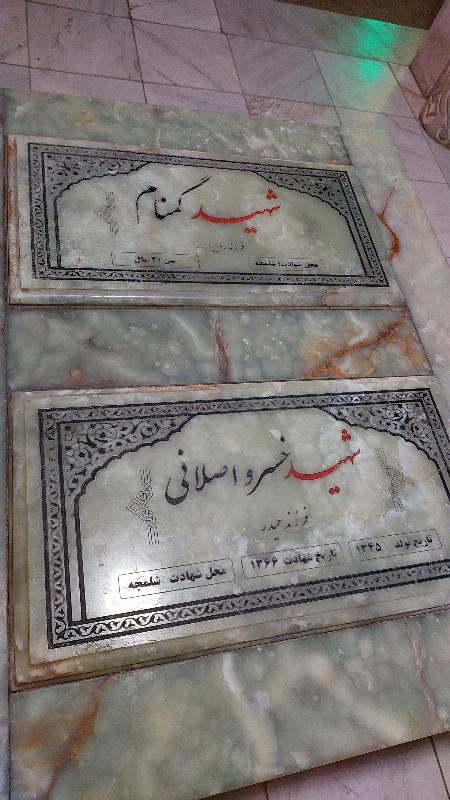 شهید گمنام
فرزند
محل شهادت: شلمچه
سن ۲۱ سال
شهید خسرو اصلانی
فرزند حیدر
تاریخ تولد ۱۳۴۵
تاریخ شهادت ۱۳۶۶
محل شهادت شلمچه